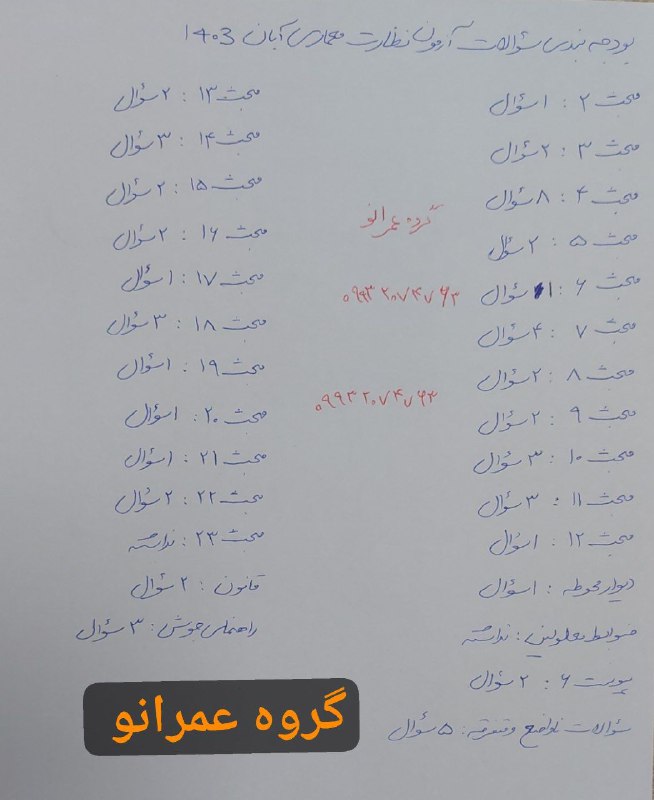 بودجه بندی سؤالات آزمون نظارت معماری آبان ۱۴۰۳
مبحث ۲ : ۱ سؤال
مبحث ۳ : ۲ سؤال
مبحث ۴ : ۸ سؤال
مبحث ۵ : ۲ سؤال
مبحث ۶ : ۱ سؤال
مبحث ۷ : ۴ سؤال
مبحث ۸ : ۲ سؤال
مبحث ۹ : ۲ سؤال
مبحث ۱۰ : ۳ سؤال
مبحث ۱۱ : ۳ سؤال
مبحث ۱۲ : ۱ سؤال
دیوار محوطه : ۱ سؤال
ضوابط معلولین : نداشته
پیوست ۶ : ۲ سؤال
سؤالات ناواضح و متفرقه : ۵ سؤال
گروه عمرانو
۰۹۹۳۲۰۷۴۷۶۳
۰۹۹۳۲۰۷۴۷۶۳
مبحث ۱۳ : ۲ سؤال
مبحث ۱۴ : ۳ سؤال
مبحث ۱۵ : ۲ سؤال
مبحث ۱۶ : ۲ سؤال
مبحث ۱۷ : ۱ سؤال
مبحث ۱۸ : ۳ سؤال
مبحث ۱۹ : ۱ سؤال
مبحث ۲۰ : ۱ سؤال
مبحث ۲۱ : ۱ سؤال
مبحث ۲۲ : ۲ سؤال
مبحث ۲۳ : نداشته
قانون : ۲ سؤال
راهنمای جوش : ۳ سؤال
گروه عمرانو